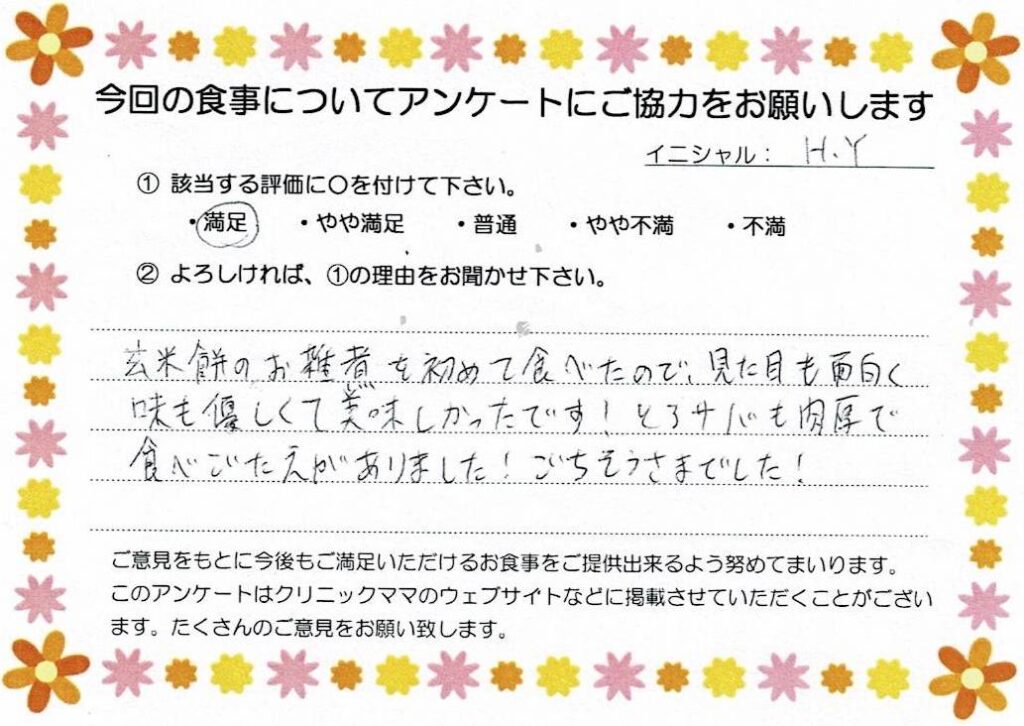 今回の食事についてアンケートにご協力をお願いします
イニシャル： H.Y
① 該当する評価に〇を付けて下さい。
・満足 ・やや満足 ・普通 ・やや不満 ・不満
② よろしければ、①の理由をお聞かせ下さい。
玄米餅のお雑煮を初めて食べたので、見た目も面白く
味も優しくて美味しかったです！とろサバも肉厚で
食べごたえがありました！ごちそうさまでした！
ご意見をもとに今後もご満足いただけるお食事をご提供出来るよう努めてまいります。
このアンケートはクリニックママのウェブサイトなどに掲載させていただくことがござい
ます。たくさんのご意見をお願い致します。